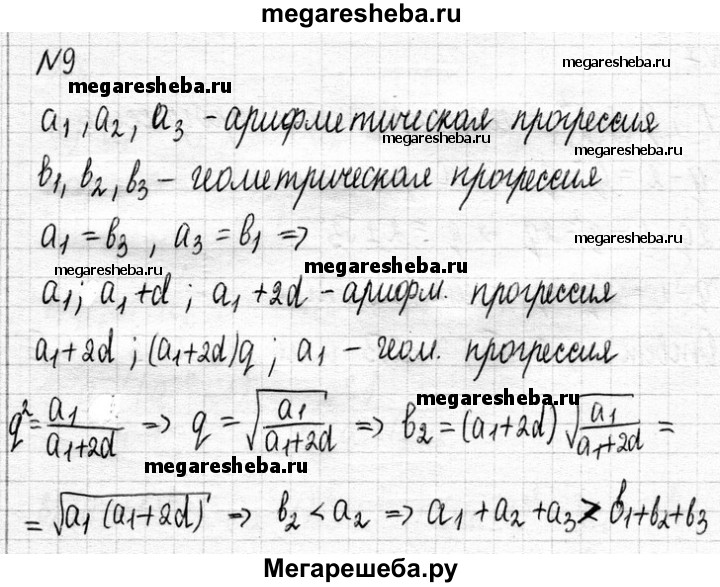 megaresheba.ru
N9
megaresheba.ru
megaresheba.ru
a₁, a₂, a₃ - арифметическая прогрессия
megaresheba.ru
megaresheba.ru
b₁, b₂, b₃ - геометрическая прогрессия
a₁ = b₃, a₃ = b₁ =>
megaresheba.ru
megaresheba.ru
megaresheba.ru
a₁; a₁+d; a₁+2d - арифм. прогрессия
a₁+2d; (a₁+2d)q; a₁ - геом. прогрессия
megaresheba.ru
q² = a₁/(a₁+2d) => q = √(a₁/(a₁+2d)) => b₂ = (a₁+2d) √(a₁/(a₁+2d)) =
megaresheba.ru
= √(a₁(a₁+2d)) => b₂ < a₂ => a₁+a₂+a₃ > b₁+b₂+b₃
Мегарешеба.ру